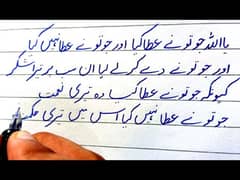 یااللہ جو تو نے عطا کیا اور جو تو نے عطا نہیں کیا
اور جو تو نے دے کر لے لیا ان سب پر تیرا شکر
کیونکہ جو تو نے عطا کیا وہ تیری نعمت
جو تو نے عطا نہیں کیا اس میں تیری حکمت